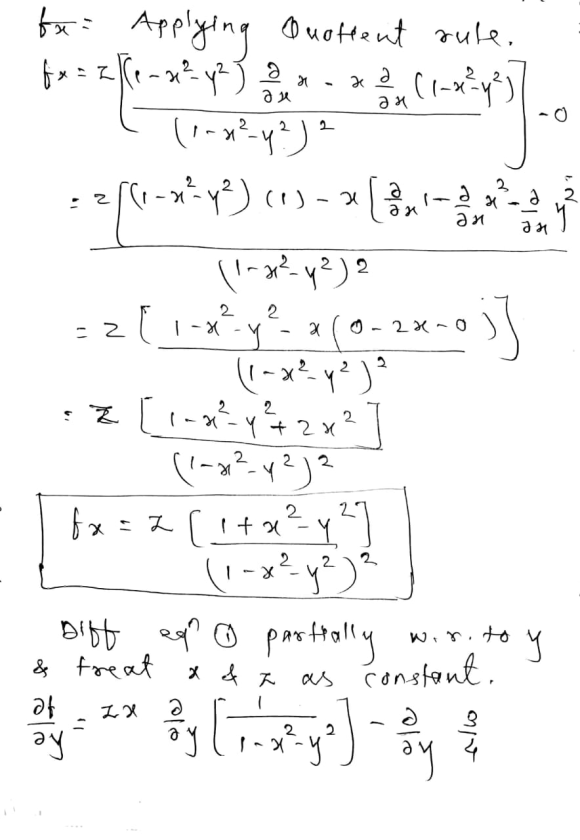 fx = Applying Quotient rule.
fx = z [ (1-x²-y²) ∂/∂x x - x ∂/∂x (1-x²-y²) / (1-x²-y²)² ] - 0
= z [ (1-x²-y²) (1) - x [ ∂/∂x 1 - ∂/∂x x² - ∂/∂x y² / (1-x²-y²)²
= z [ 1-x²-y² - x (0-2x-0) / (1-x²-y²)² ]
= z [ 1-x²-y²+2x² ] / (1-x²-y²)²
fx = z [ 1+x²-y² ] / (1-x²-y²)²
Diff eqⁿ ① partially w.r.to y
& treat x & z as constant.
∂f/∂y = zx ∂/∂y [ 1 / 1-x²-y² ] - ∂/∂y 3/4